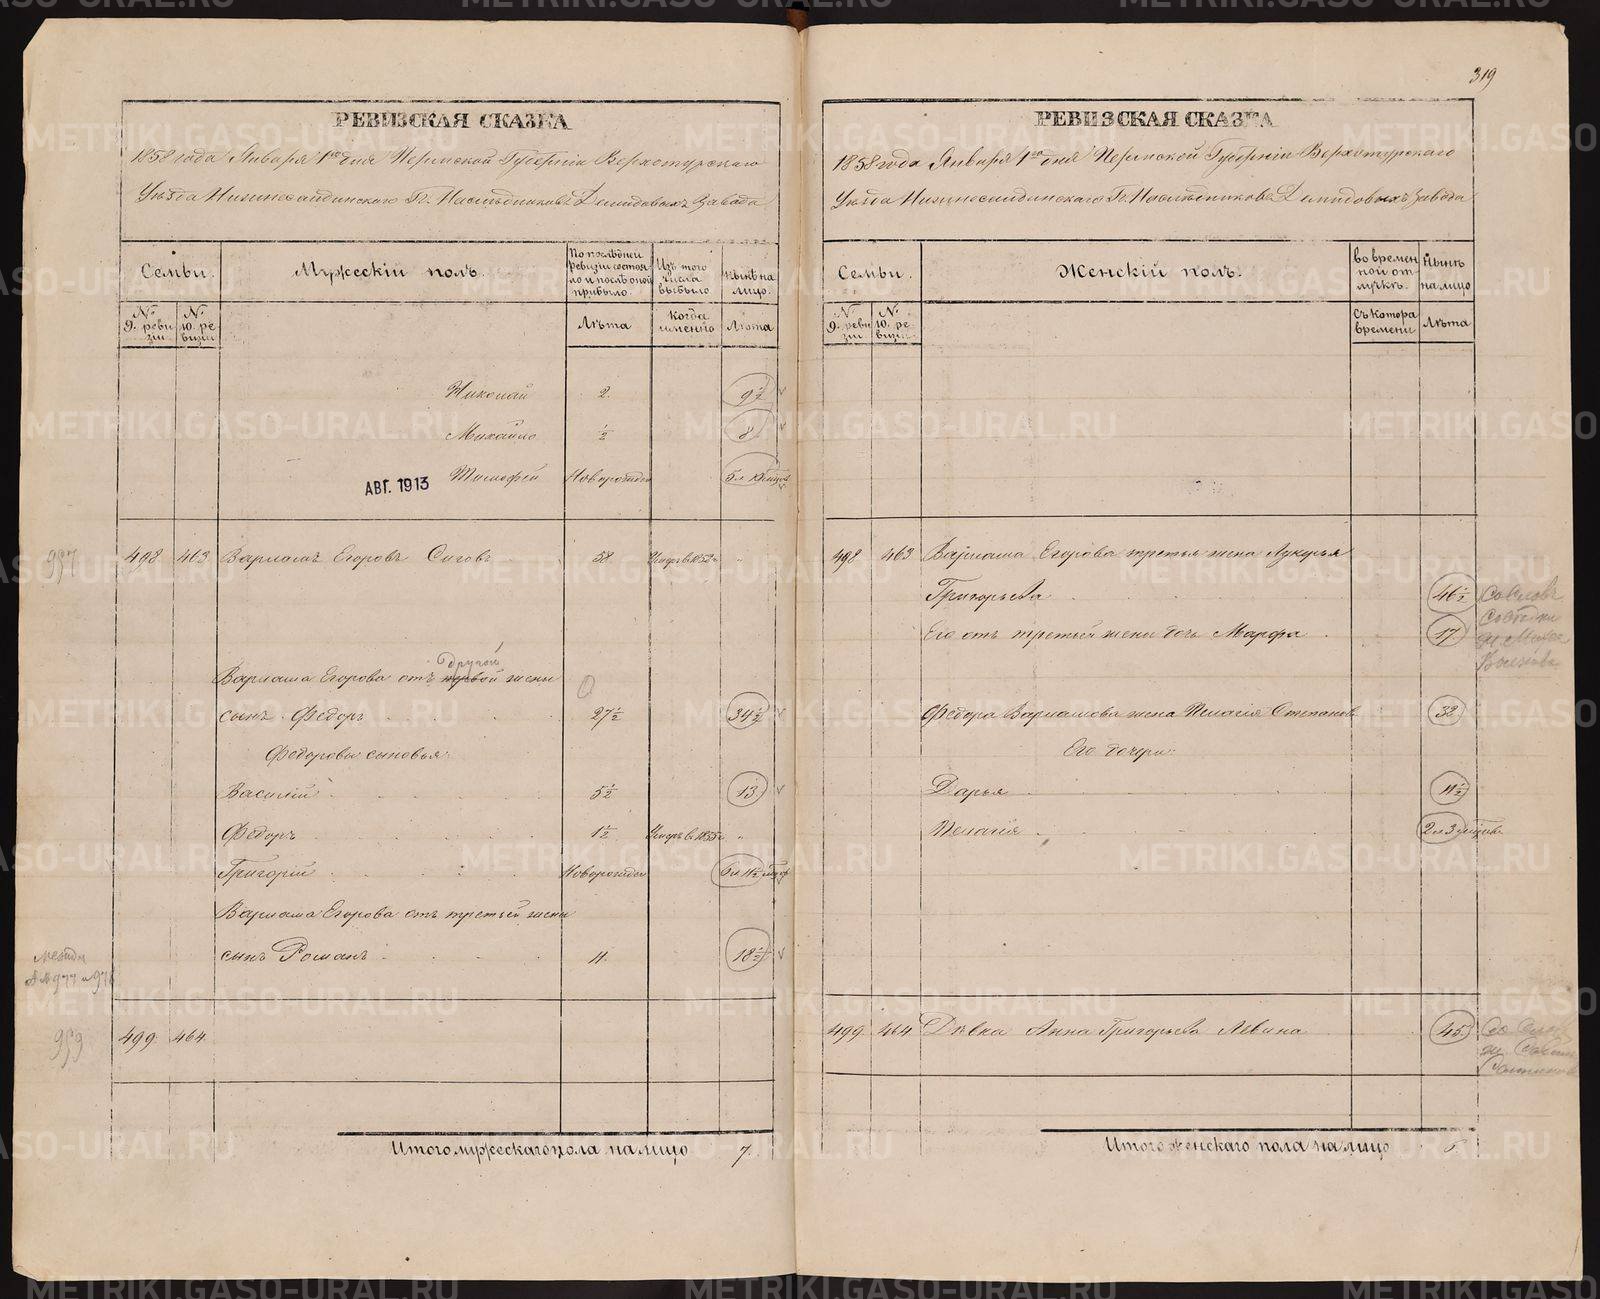 319
РЕВИЗСКАЯ СКАЗКА
1858 года Января 1го дня Пермской Губернiи Верхотурскаго
Уѣзда Нижнесалдинскаго Гг. Наслѣдниковъ Демидовыхъ Завода
Семьи.
Мужескiй полъ.
По послѣдней ревизiи состояло и послѣ оной прибыло.
Изъ того числа выбыло.
Нынѣ на лицо.
№ 9. ревизiи
№ 10. ревизiи
Лѣта
Когда именно
Лѣта
Николай 2. 9½
Михайло ½ 8
АВГ. 1913 Тимофей Новорожден 5л
957 498 463 Варламъ Егоровъ Сиговъ 58. Умеръ в 1852 г "
Варлама Егорова отъ первой другой жены
сынъ Федоръ 27½ 34½
Федоровы сыновья:
Василiй 5½ 13
Федоръ 1½ Умеръ в 1855 г "
Григорiй Новорожден 6л 11½
Варлама Егорова отъ третьей жены
сынъ Романъ 11. 18½
959 499. 464.
Итого мужескаго пола на лицо 7.
РЕВИЗСКАЯ СКАЗКА
1858 года Января 1го дня Пермской Губернiи Верхотурскаго
Уѣзда Нижнесалдинскаго Гг. Наслѣдниковъ Демидовыхъ Завода
Семьи.
Женскiй полъ.
во временной отлучкѣ.
Нынѣ на лицо
№ 9. ревизiи
№ 10. ревизiи
Съ котора времени
Лѣта
498 463 Варлама Егорова третья жена Лукерья
Григорьева 46½
Его отъ третьей жены дочь Марфа 17
Федора Варламова жена Пелагiя Степанов 32
Его дочери:
Дарья 11½
Пелагiя 2 л 3
499. 464 Дѣвка Анна Григорьева Левина 45
Итого женскаго пола на лицо 6
METRIKI.GASO-URAL.RU